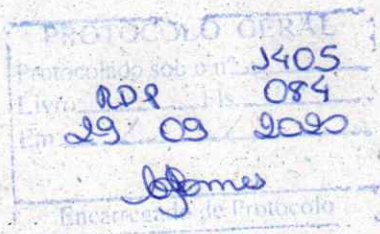 PROTOCOLO GERAL
Protocolado sob o nº 1405
Livro RDP Fls. 084
Em 29 / 09 / 2020
Encarregado de Protocolo